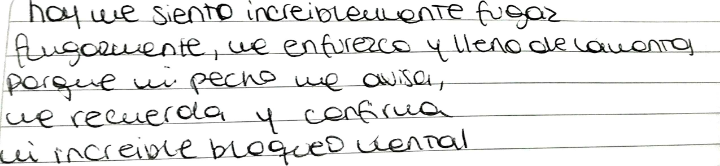 hoy me siento increiblemente fugaz
fugazmente, me enfurezco y lleno de lamentos
porque mi pecho me avisa,
me recuerda y confirma
mi increible bloqueo mental